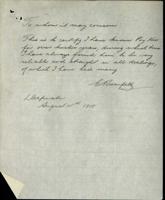 To whom it may concern
This is to certify I have known Roy
for over twelve years, during which time
I have always found him to be very
reliable and straight in all dealings
of which I have had many
August